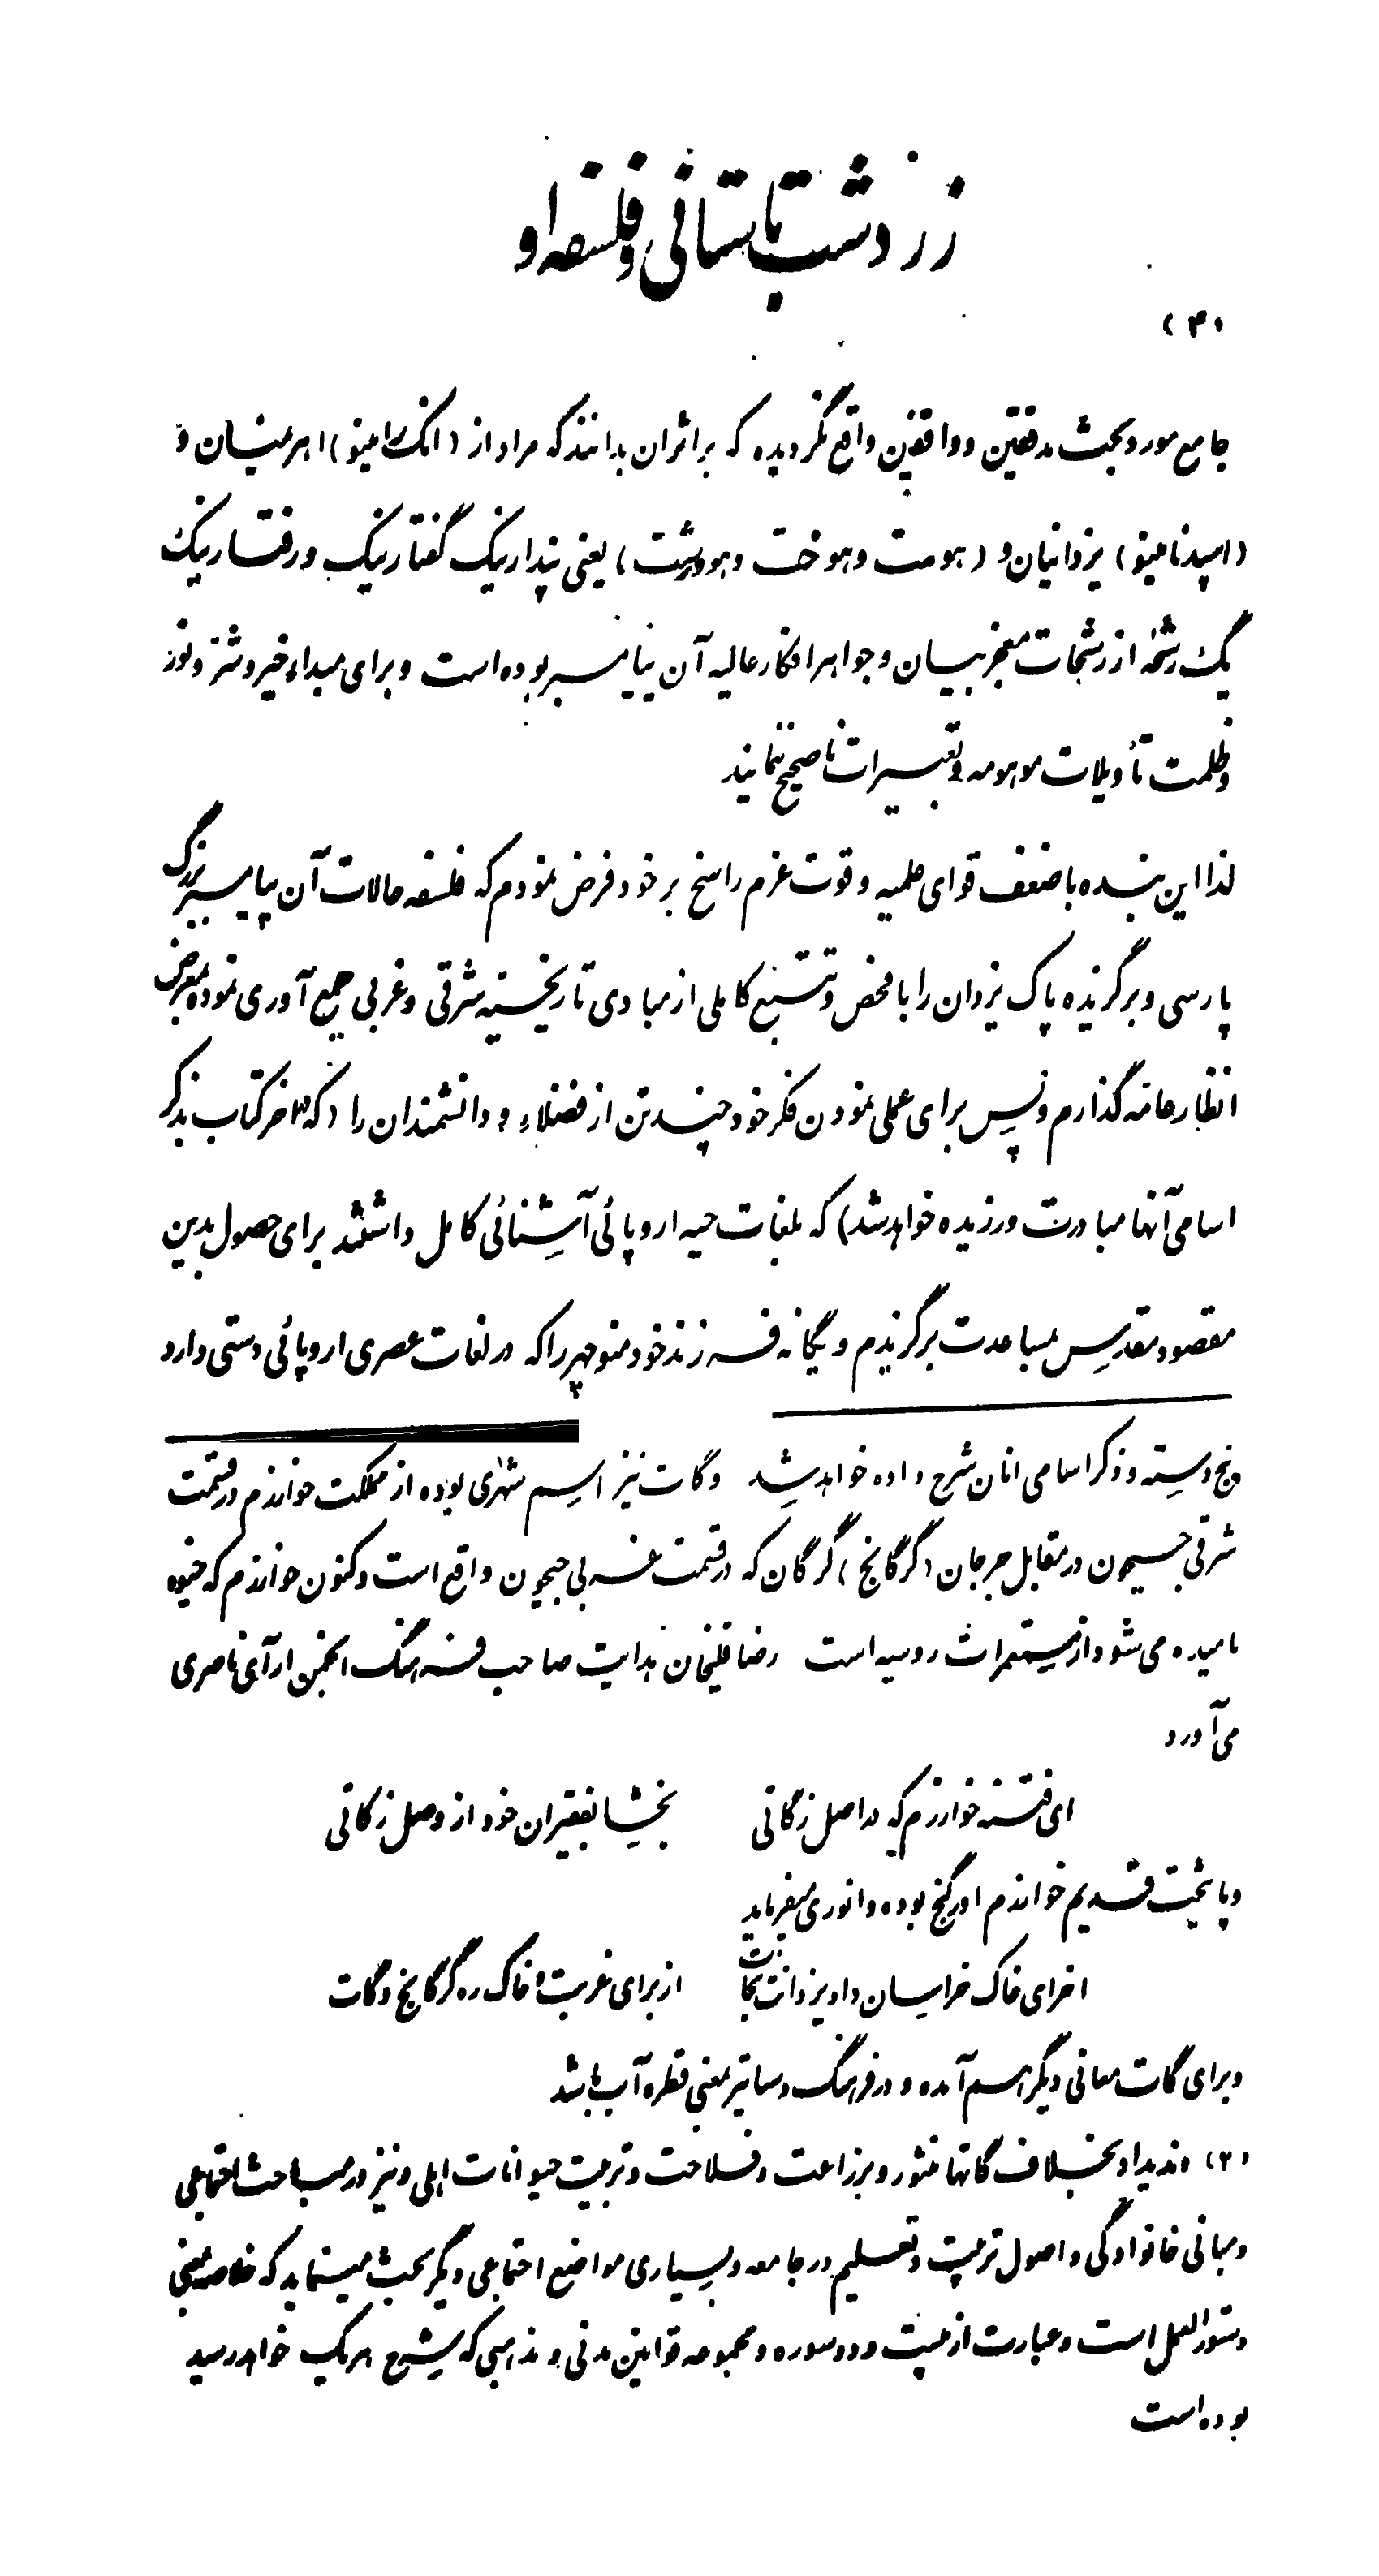 زردشت باستانی و فلسفه او
(۴)
جامع مورد بحث مدققین و واقفین واقع نگردیده که بر اثر آن بدانند که مراد از (انگرامینو) اهرمنیان و
(اسپدنامینو) یزدانیان و (هومت و هوخت و هوورشت) یعنی پندار نیک گفتار نیک و رفتار نیک
یک رشحه از رشحات معجز بیان و جواهر افکار عالیه آن پیامبر بوده است و برای مبداء خیر و شر و نور
و ظلمت تأویلات موهومه و تعبیرات ناصحیح ننمایند
لذا این بنده با ضعف قوای علمیه و قوت عزم راسخ بر خود فرض نمودم که فلسفه حالات آن پیامبر بزرگ
پارسی و برگزیده پاک یزدان را با فحص و تتبع کاملی از مبادی تاریخیه شرقی و غربی جمع آوری نموده بمعرض
انظار عامه گذارم و پس برای عملی نمودن فکر خود چند تن از فضلاء و دانشمندان را (که در آخر کتاب بذکر
اسامی آنها مبادرت ورزیده خواهد شد) که بلغات حیه اروپائی آشنائی کامل داشتند برای حصول بدین
مقصود مقدس بمساعدت برگزیدم و یگانه فرزند خود منوچهر را که در لغات عصری اروپائی دستی دارد
پنج دسته و ذکر اسامی آنان شرح داده خواهد شد و گات نیز اسم شهری بوده از مملکت خوارزم در قسمت
شرقی جیحون در مقابل جرجان (گرگانج) گرگان که در قسمت غربی جیحون واقع است و کنون خوارزم که خیوه
نامیده می‌شود از مستعمرات روسیه است رضا قلیخان هدایت صاحب فرهنگ انجمن آرای ناصری
می‌آورد
ای فتنه خوارزم که در اصل ز گاتی بخشا بفقیران خود از وصل زکاتی
و پایتخت قدیم خوارزم اورگنج بوده و انوری میفرماید
آخر ای خاک خراسان داد یزدانت نجات از برای غربت خاک ره گرگانج و گات
و برای گات معانی دیگر هم آمده و در فرهنگ دساتیر بمعنی قطره آب باشد
(۲) وندیداد بخلاف گاتها منثور و بزراعت و فلاحت و تربیت حیوانات اهلی و نیز در مباحث اجتماعی
و مبانی خانوادگی و اصول تربیت و تعلیم در جامعه و بسیاری مواضع اجتماعی دیگر بحث مینماید که خلاصه معنی
دستورالعمل است و عبارت از بیست و دو سوره و مجموعه قوانین مدنی و مذهبی که بشرح هر یک خواهد رسید
بوده است